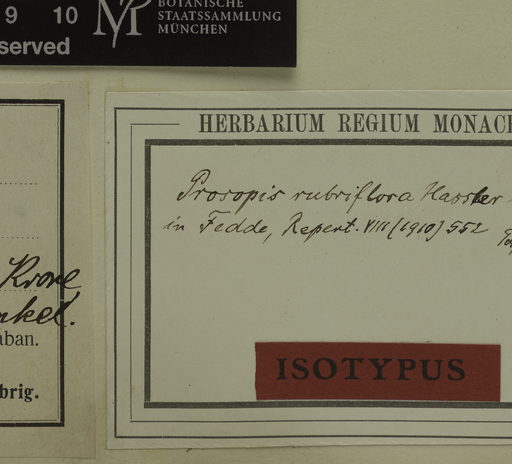 9 10
served
BOTANISCHE
STAATSSAMMLUNG
MÜNCHEN
Krone
nkel.
aban.
brig.
HERBARIUM REGIUM MONAC
Prosopis rubriflora Hassler
in Fedde, Repert. VIII (1910) 552
ISOTYPUS